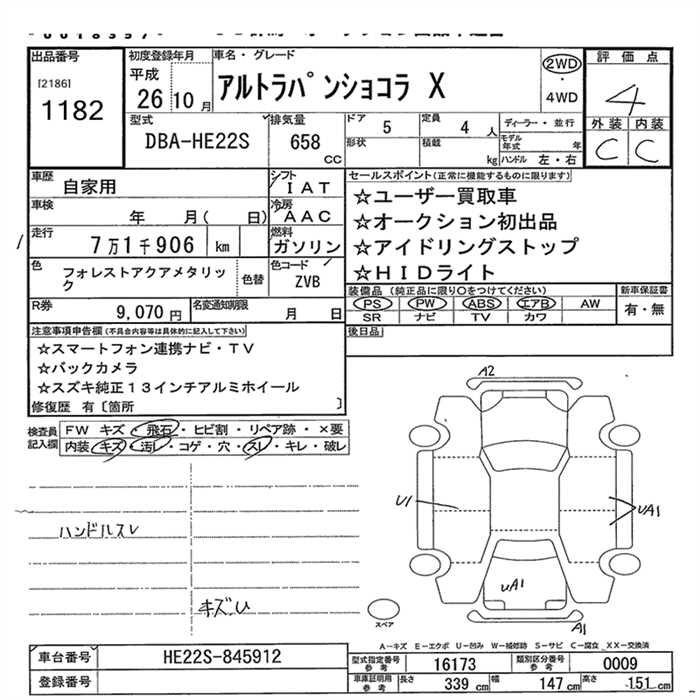 出品番号
[2186]
1182
初度登録年月
平成
26年10月
車名・グレード
アルトラパンショコラ X
2WD
・
4WD
評価点
4
外装 内装
C C
型式
DBA-HE22S
排気量
658
CC
ドア 5
形状
定員 4 人
積載 kg
ディーラー・並行
モデル年式 年
ハンドル 左・右
車歴 自家用
シフト IAT
車検 年 月( 日)
冷房 AAC
走行 7万1千906 km
燃料 ガソリン
色 フォレストアクアメタリック
色替
色コード ZVB
R券 9,070円
名変通知期限 月 日
セールスポイント(正常に機能するものに限ります)
☆ユーザー買取車
☆オークション初出品
☆アイドリングストップ
☆HIDライト
装備品 (純正品に限り○をつけてください)
PS PW ABS エアB AW
SR ナビ TV カワ
新車保証書
有・無
後日品
注意事項申告欄(不具合内容等は具体的に記入して下さい)
☆スマートフォン連携ナビ・TV
☆バックカメラ
☆スズキ純正13インチアルミホイール
修復歴 有〔箇所 〕
検査員記入欄
FW キズ・飛石・ヒビ割・リペア跡・×要
内装 キズ・汚レ・コゲ・穴・スレ・キレ・破レ
ハンドルスレ
キズU
A2
U1
UA1
UA1
A1
スペア
A-キズ E-エクボ U-凹み W-補修跡 S-サビ C-腐食 XX-交換済
車台番号 HE22S-845912
登録番号
型式指定番号 参考 16173
類別区分番号 参考 0009
車庫証明用 参考 長さ 339 cm 幅 147 cm 高さ 151 cm